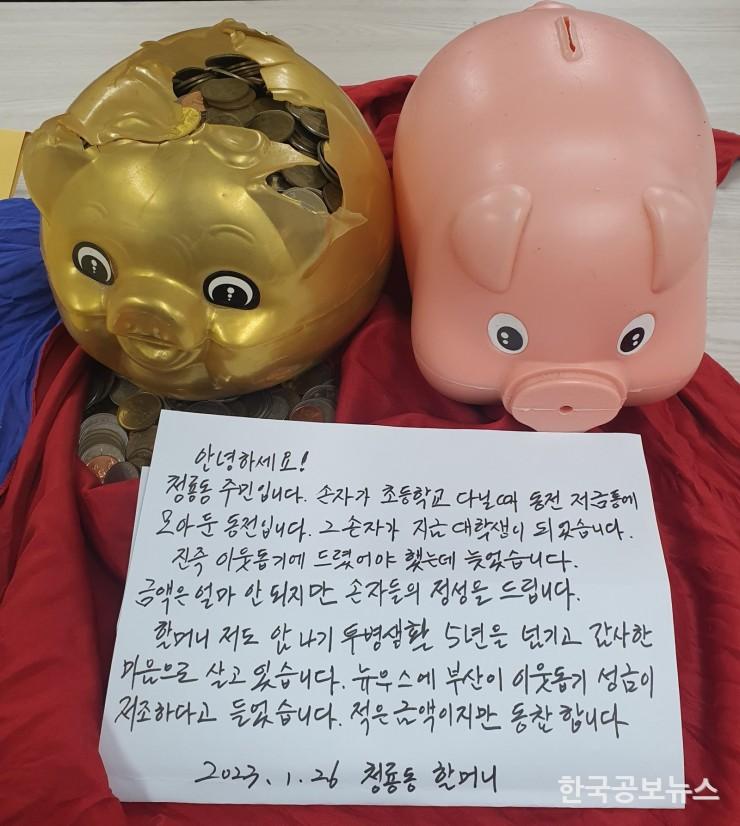 안녕하세요!
청룡동 주민입니다. 손자가 초등학교 다닐때 동전 저금통에
모아둔 동전입니다. 그 손자가 지금 대학생이 되었습니다.
진즉 이웃돕기에 드렸어야 했는데 늦었습니다.
금액은 얼마 안 되지만 손자들의 정성을 드립니다.
할머니 저도 암 나기 투병생활 5년을 넘기고 감사한
마음으로 살고 있습니다. 뉴우스에 부산이 이웃돕기 성금이
저조하다고 들었습니다. 적은 금액이지만 동참 합니다
2023. 1. 26 청룡동 할머니
한국공보뉴스